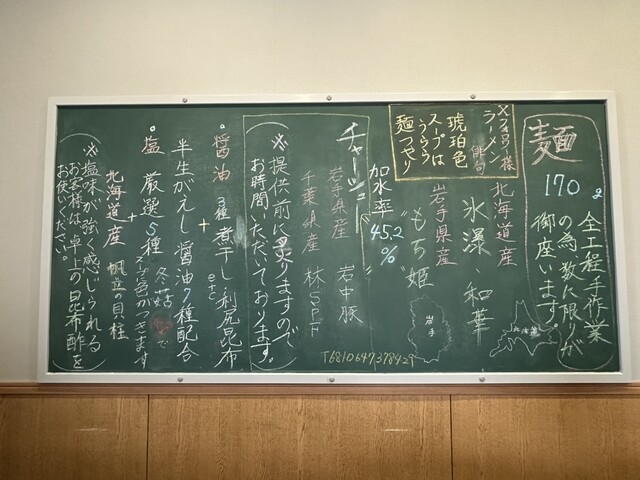 麺 170g
全工程手作業
の為数に限りが
御座います。
北海道産
氷瀑、和華
北海道
ラーメン
俳句
琥珀色
スープは
うらら
麺つやり
岩手県産
"もち姫"
岩手
加水率
45.2
%
チャーシュー
岩手県産 岩中豚
千葉県産 林SPF
T6810647378429
(※提供前に炙りますので
お時間いただいております。)
・醤油 3種煮干し、利尻昆布
etc
+
半生がえし醤油7種配合
・塩 厳選5種 冬菇
で
スープに色がつきます
+
北海道産 帆立の貝柱
(※塩味が強く感じられる
お客様は、卓上の昆布酢を
お使いください。)